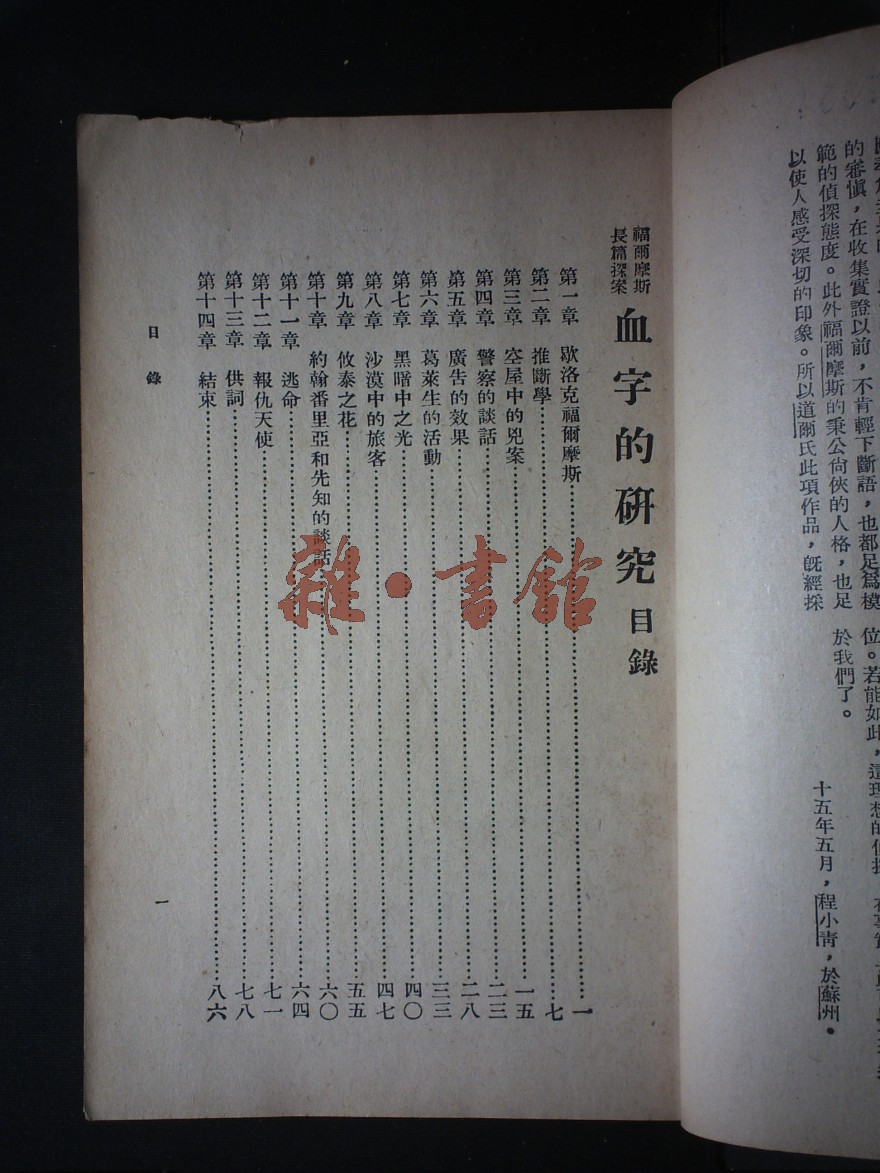 的審愼，在收集實證以前，不肯輕下斷語，也都足爲模
範的偵探態度。此外福爾摩斯的秉公尙俠的人格，也足
以使人感受深切的印象。所以道爾氏此項作品，旣經採
位。若能如此，這理想的偵探
於我們了。
十五年五月，程小靑，於蘇州。
福爾摩斯
長篇探案
血字的研究 目錄
第一章 歇洛克福爾摩斯……一
第二章 推斷學……七
第三章 空屋中的兇案……一五
第四章 警察的談話……二三
第五章 廣告的效果……二八
第六章 葛萊生的活動……三三
第七章 黑暗中之光……四〇
第八章 沙漠中的旅客……四七
第九章 攸泰之花……五五
第十章 約翰番里亞和先知的談話……六〇
第十一章 逃命……六四
第十二章 報仇天使……七一
第十三章 供詞……七八
第十四章 結束……八六
目錄
一
雜·書館